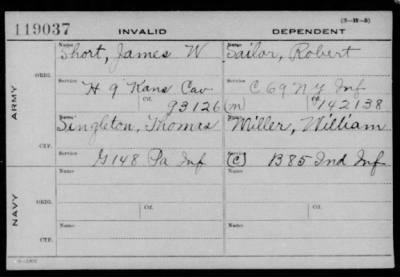 (3-18-3)
119037 INVALID DEPENDENT
Name Short, James W Name Sailor, Robert
ARMY
ORIG.
Service H 9 Kans Cav Service C 69 N Y Inf
Ctf. 93126 (m) Ctf. 142138
CTF.
Name Singleton, Thomas Name Miller, William
Service G 148 Pa Inf Service (C) B 85 Ind Inf
NAVY
ORIG.
Name Name
Service Ctf. Service Ctf.
CTF.
Name Name
Service Service